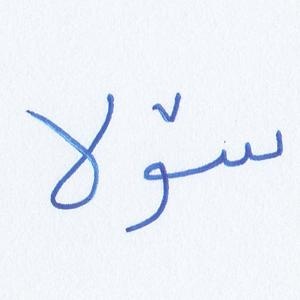 سۆلا